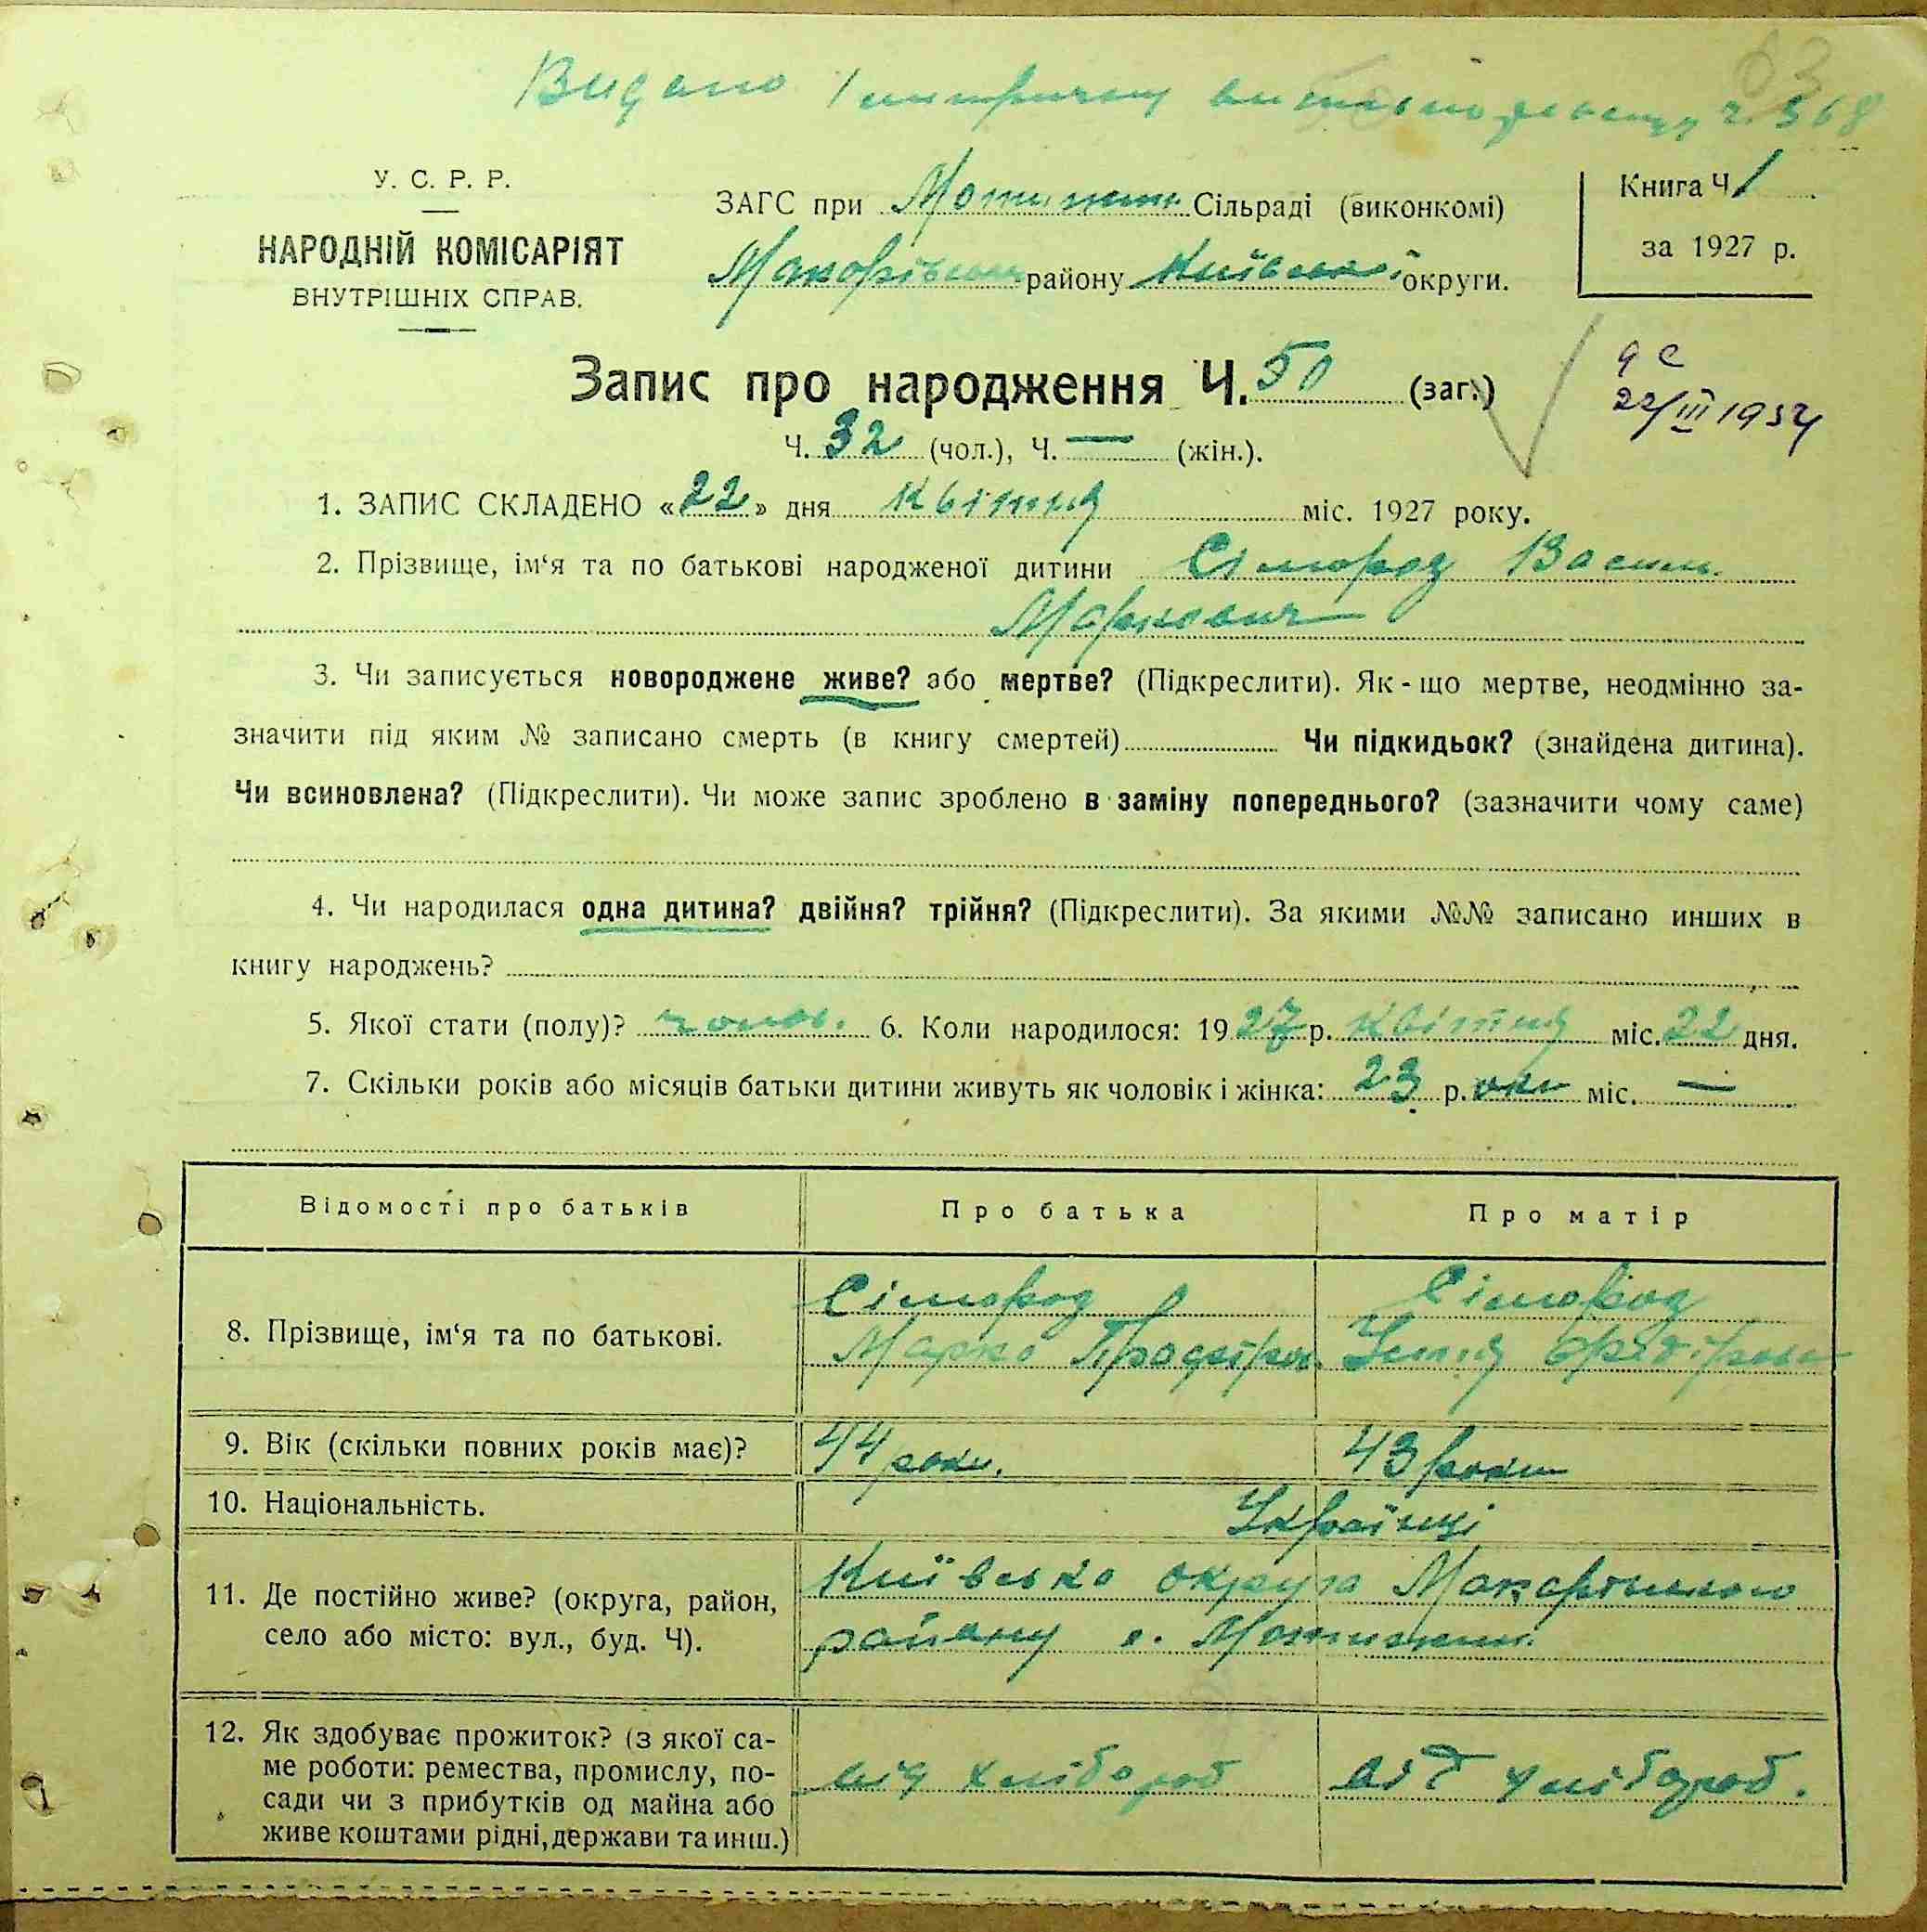 63
Видано 1 метричну виписку ч. 368
У. С. Р. Р.
НАРОДНІЙ КОМІСАРІЯТ
ВНУТРІШНІХ СПРАВ.
ЗАГС при Мотижин. Сільраді (виконкомі)
Макарівськ району Київської округи.
Книга Ч 1
за 1927 р.
Запис про народження Ч. 50 (заг.)
22/III 1934
Ч. 32 (чол.), Ч. — (жін.).
1. ЗАПИС СКЛАДЕНО «22» дня квітня міс. 1927 року.
2. Прізвище, ім‘я та по батькові народженої дитини Сімород Васил.
Маркович
3. Чи записується новороджене живе? або мертве? (Підкреслити). Як-що мертве, неодмінно за-
значити під яким № записано смерть (в книгу смертей) Чи підкидьок? (знайдена дитина).
Чи всиновлена? (Підкреслити). Чи може запис зроблено в заміну попереднього? (зазначити чому саме)
4. Чи народилася одна дитина? двійня? трійня? (Підкреслити). За якими №№ записано инших в
книгу народжень?
5. Якої стати (полу)? чолов. 6. Коли народилося: 1927 р. Квітня міс. 22 дня.
7. Скільки років або місяців батьки дитини живуть як чоловік і жінка: 23 р.оки міс. —
Відомості про батьків Про батька Про матір
8. Прізвище, ім‘я та по батькові.
Сімород Сімород
Марко Профіров. Устія
9. Вік (скільки повних років має)? 44 роки. 43 роки
10. Національність. Українці
11. Де постійно живе? (округа, район,
село або місто: вул., буд. Ч).
Київська округа Макарівського
району с. Мотижин.
12. Як здобуває прожиток? (з якої са-
ме роботи: ремества, промислу, по-
сади чи з прибутків од майна або
живе коштами рідні, держави та инш.)
від хлібороб від хлібороб.